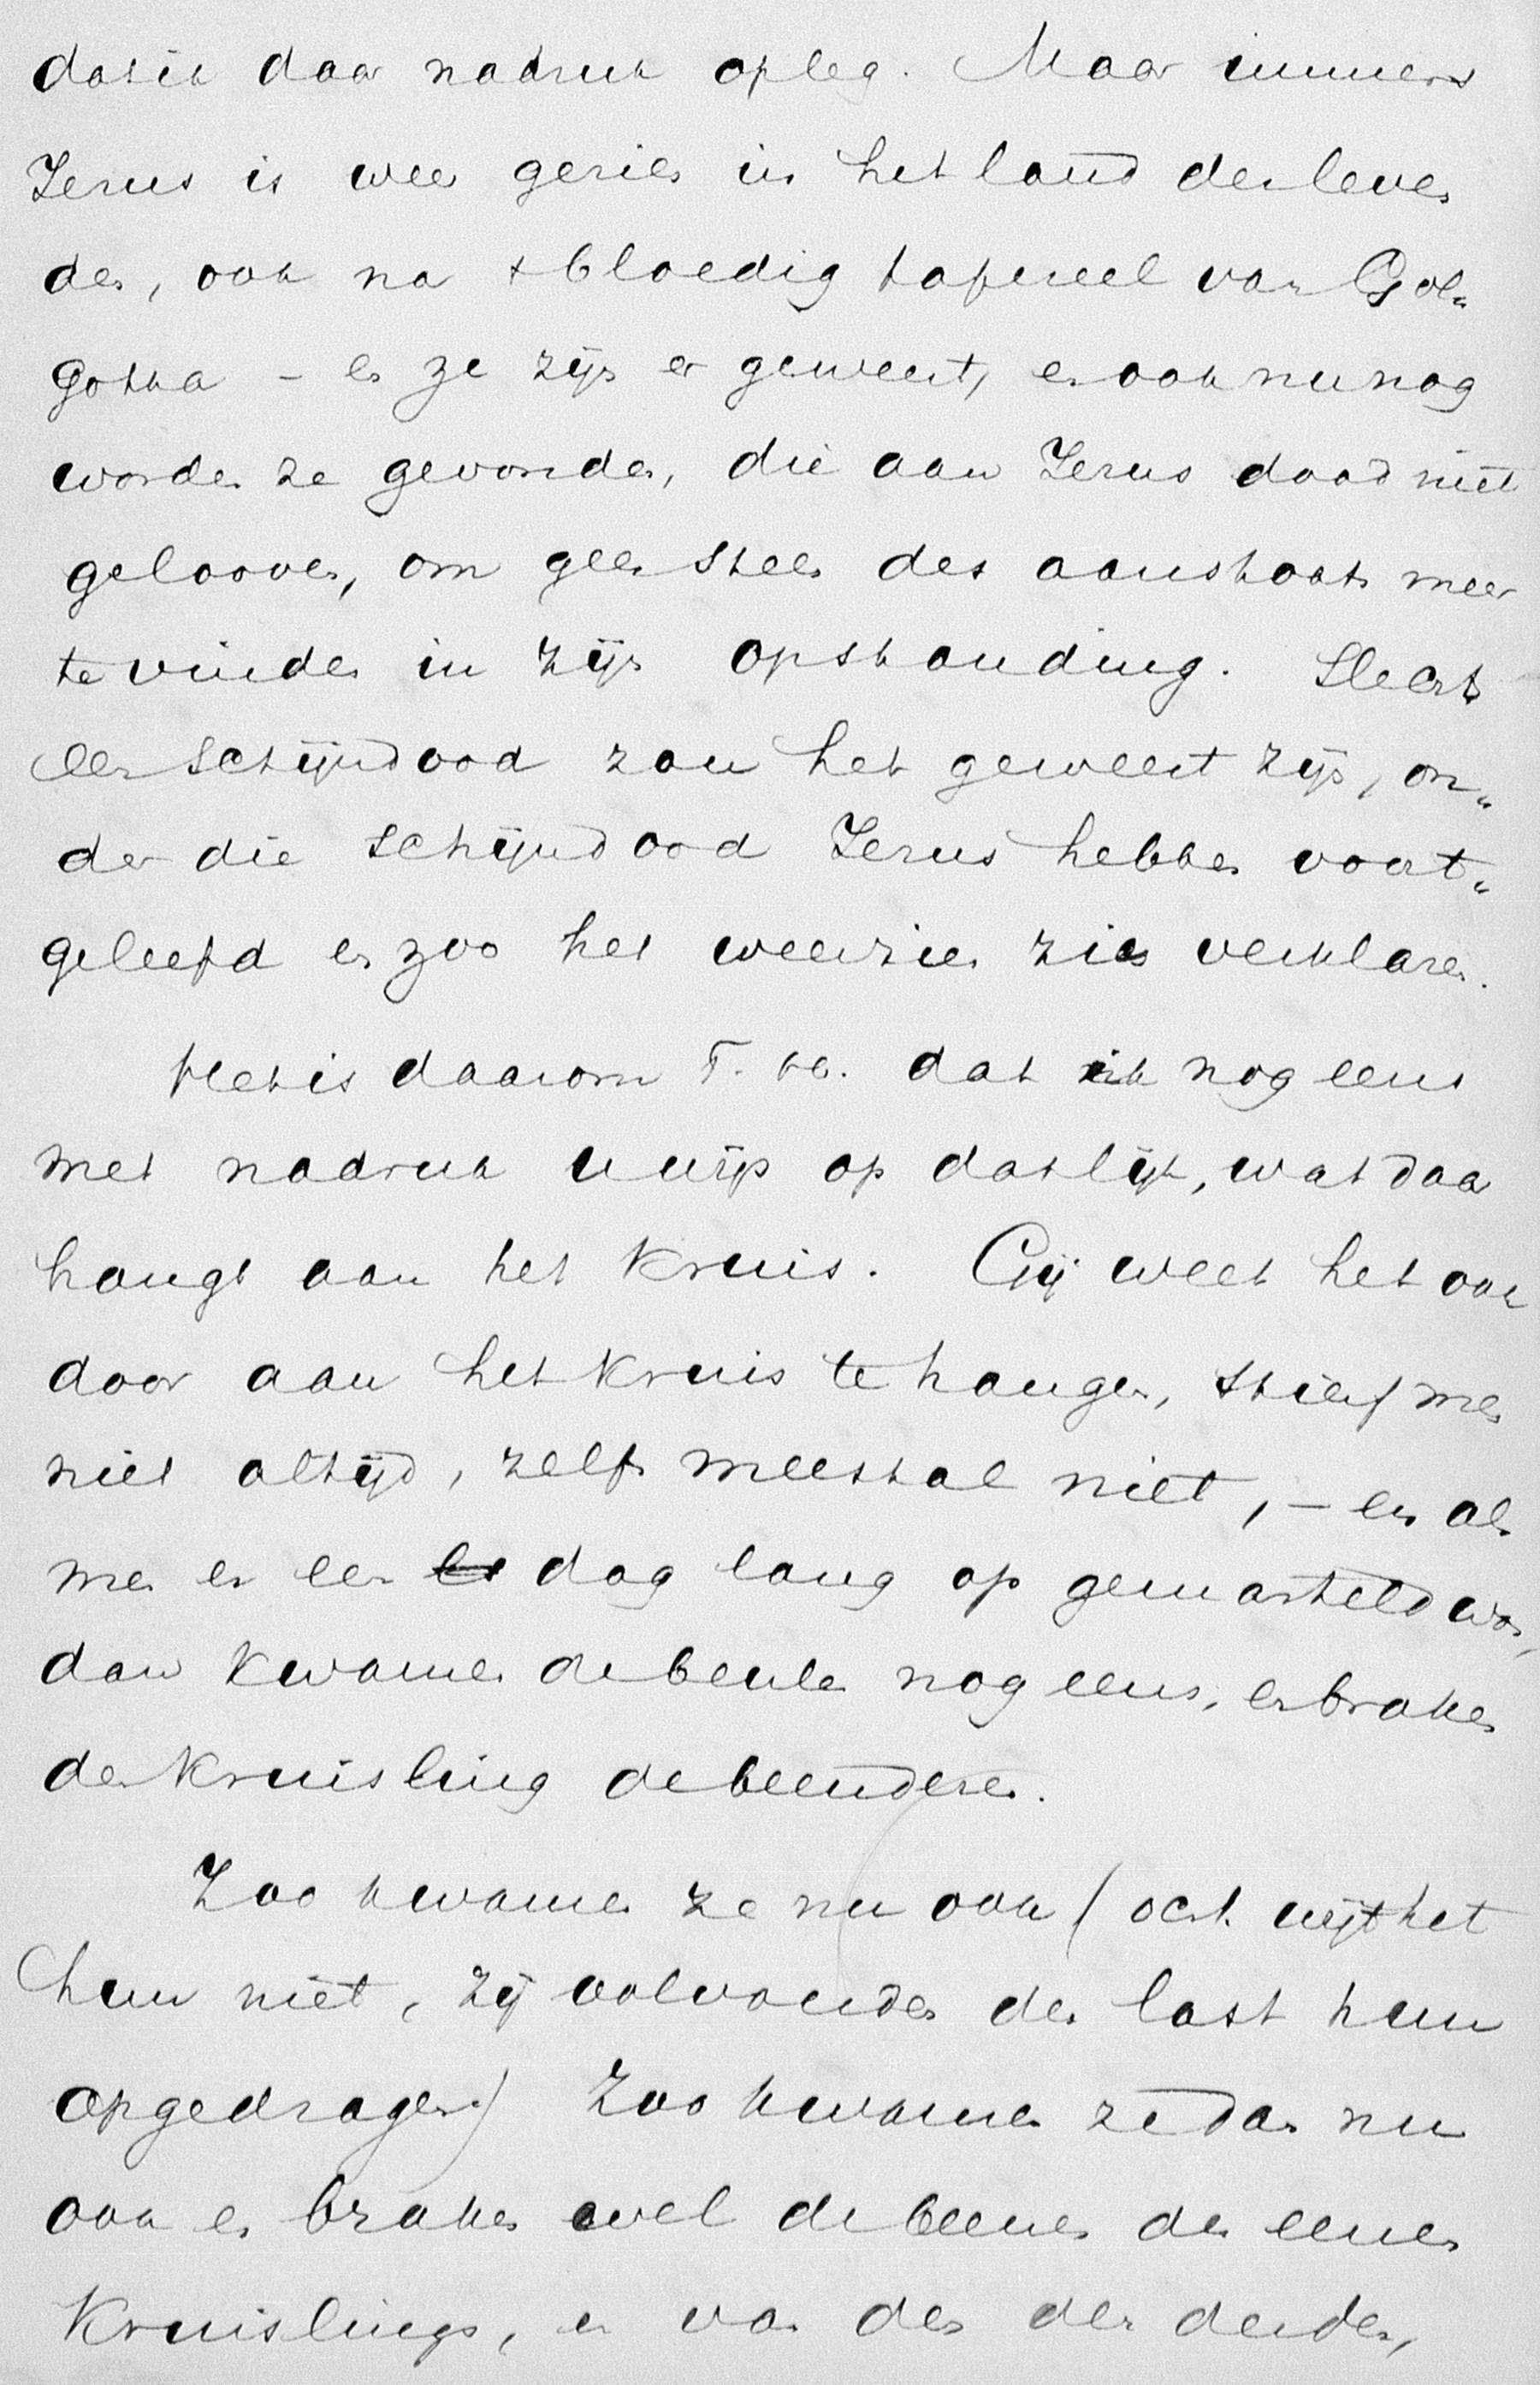 dat ik daar nadruk opleg. Maar immers
Jezus is weer gezien in het land der leven
den, ook na 't bloedig tafereel van Gol„
gotha – en ze zijn er geweest, en ook nu nog
worden ze gevonden, die aan Jezus dood niet
gelooven, om geen steen des aanstoots meer
te vinden in zijn opstanding. Slechts
een schijndood zou het geweest zijn, on„
der die schijndood Jezus hebben voort„
geleefd en zoo het weerzien zich verklaren.
Het is daarom T. h. dat ik nog eens
met nadruk u wijs op dat lijk, wat daar
hangt aan het kruis. Gij weet het ook
door aan het kruis te hangen, stierf men
niet altijd, zelfs meestal niet, – en als
men er een dag lang op gemarteld was,
dan kwamen de beulen nog eens, en braken
den kruisling de beenderen.
Zoo kwamen ze nu ook (och wijt het
hun niet, zij volvoerden den last hun
opgedragen) Zoo kwamen ze dan nu
ook en braken wel de beenen des eenen
kruislings, en van den derden,